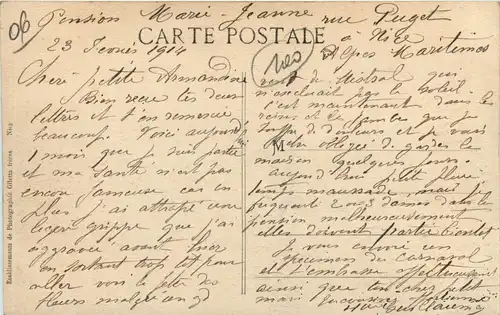 06
Pension Marie-Jeanne rue Puget
à Nice
23 Février 1914
Alpes Maritimes
CARTE POSTALE
Chère petite Armandine
Bien reçu tes deux
lettres et t'en remercie
beaucoup. Voici aujourd'hui
1 mois que je suis partie
et ma santé n'est pas
encore fameuse car en
plus j'ai attrapé une
légère grippe que j'ai
aggravée avant hier
en sortant trop tôt pour
aller voir la fête des
fleurs malgré un gd
vent de Mistral qui
n'excluait pas le soleil.
c'est maintenant dans les
reins et la jambe que je
souffre de douleurs et je vais
être obligée de garder la
maison quelques jours.
aujourd'hui petite pluie
temps maussade mais je
2 ou 3 dames dans la
pension malheureusement
elles doivent partir bientôt
Je vous envoie un
spécimen du Carnaval
et t'embrasse affectueusement
ainsi que ton cher petit
mari
Etablissements de Photographie Giletta frères Nice